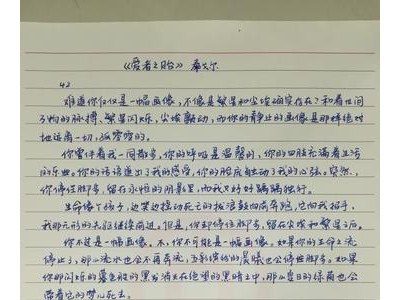 《爱者之贻》 泰戈尔
42
难道你仅仅是一幅画像,不像是繁星和尘埃确实存在?和着世间
万物的脉搏,繁星闪烁,尘埃颤动,而你的静止的画像是那样绝对
地远离一切,孤零零的。
你曾伴着我一同散步,你的呼吸是温馨的,你的四肢充满着生活
的乐曲。你的话语道出了我的感受,你的脸庞触动了我的心弦。突然,
你停住脚步,留在永恒的阴影里,而我只好踽踽独行。
生命像个孩子,边笑边摇动死亡的拨浪鼓向前奔跑,它向我招手,
我那无形的先驱继续前进。但是,你却停住脚步,留在尘埃和繁星之后。
你不过是一幅画像。不,你不可能是一幅画像。如果你的生命之流
停止了,那么流水也会不再奔流,五彩缤纷的晨曦也会停住脚步。如果
你那闪烁的暮色般的黑发消失在绝望的黑暗之中,那么夏日的绿荫也会
带着它的梦儿死去。